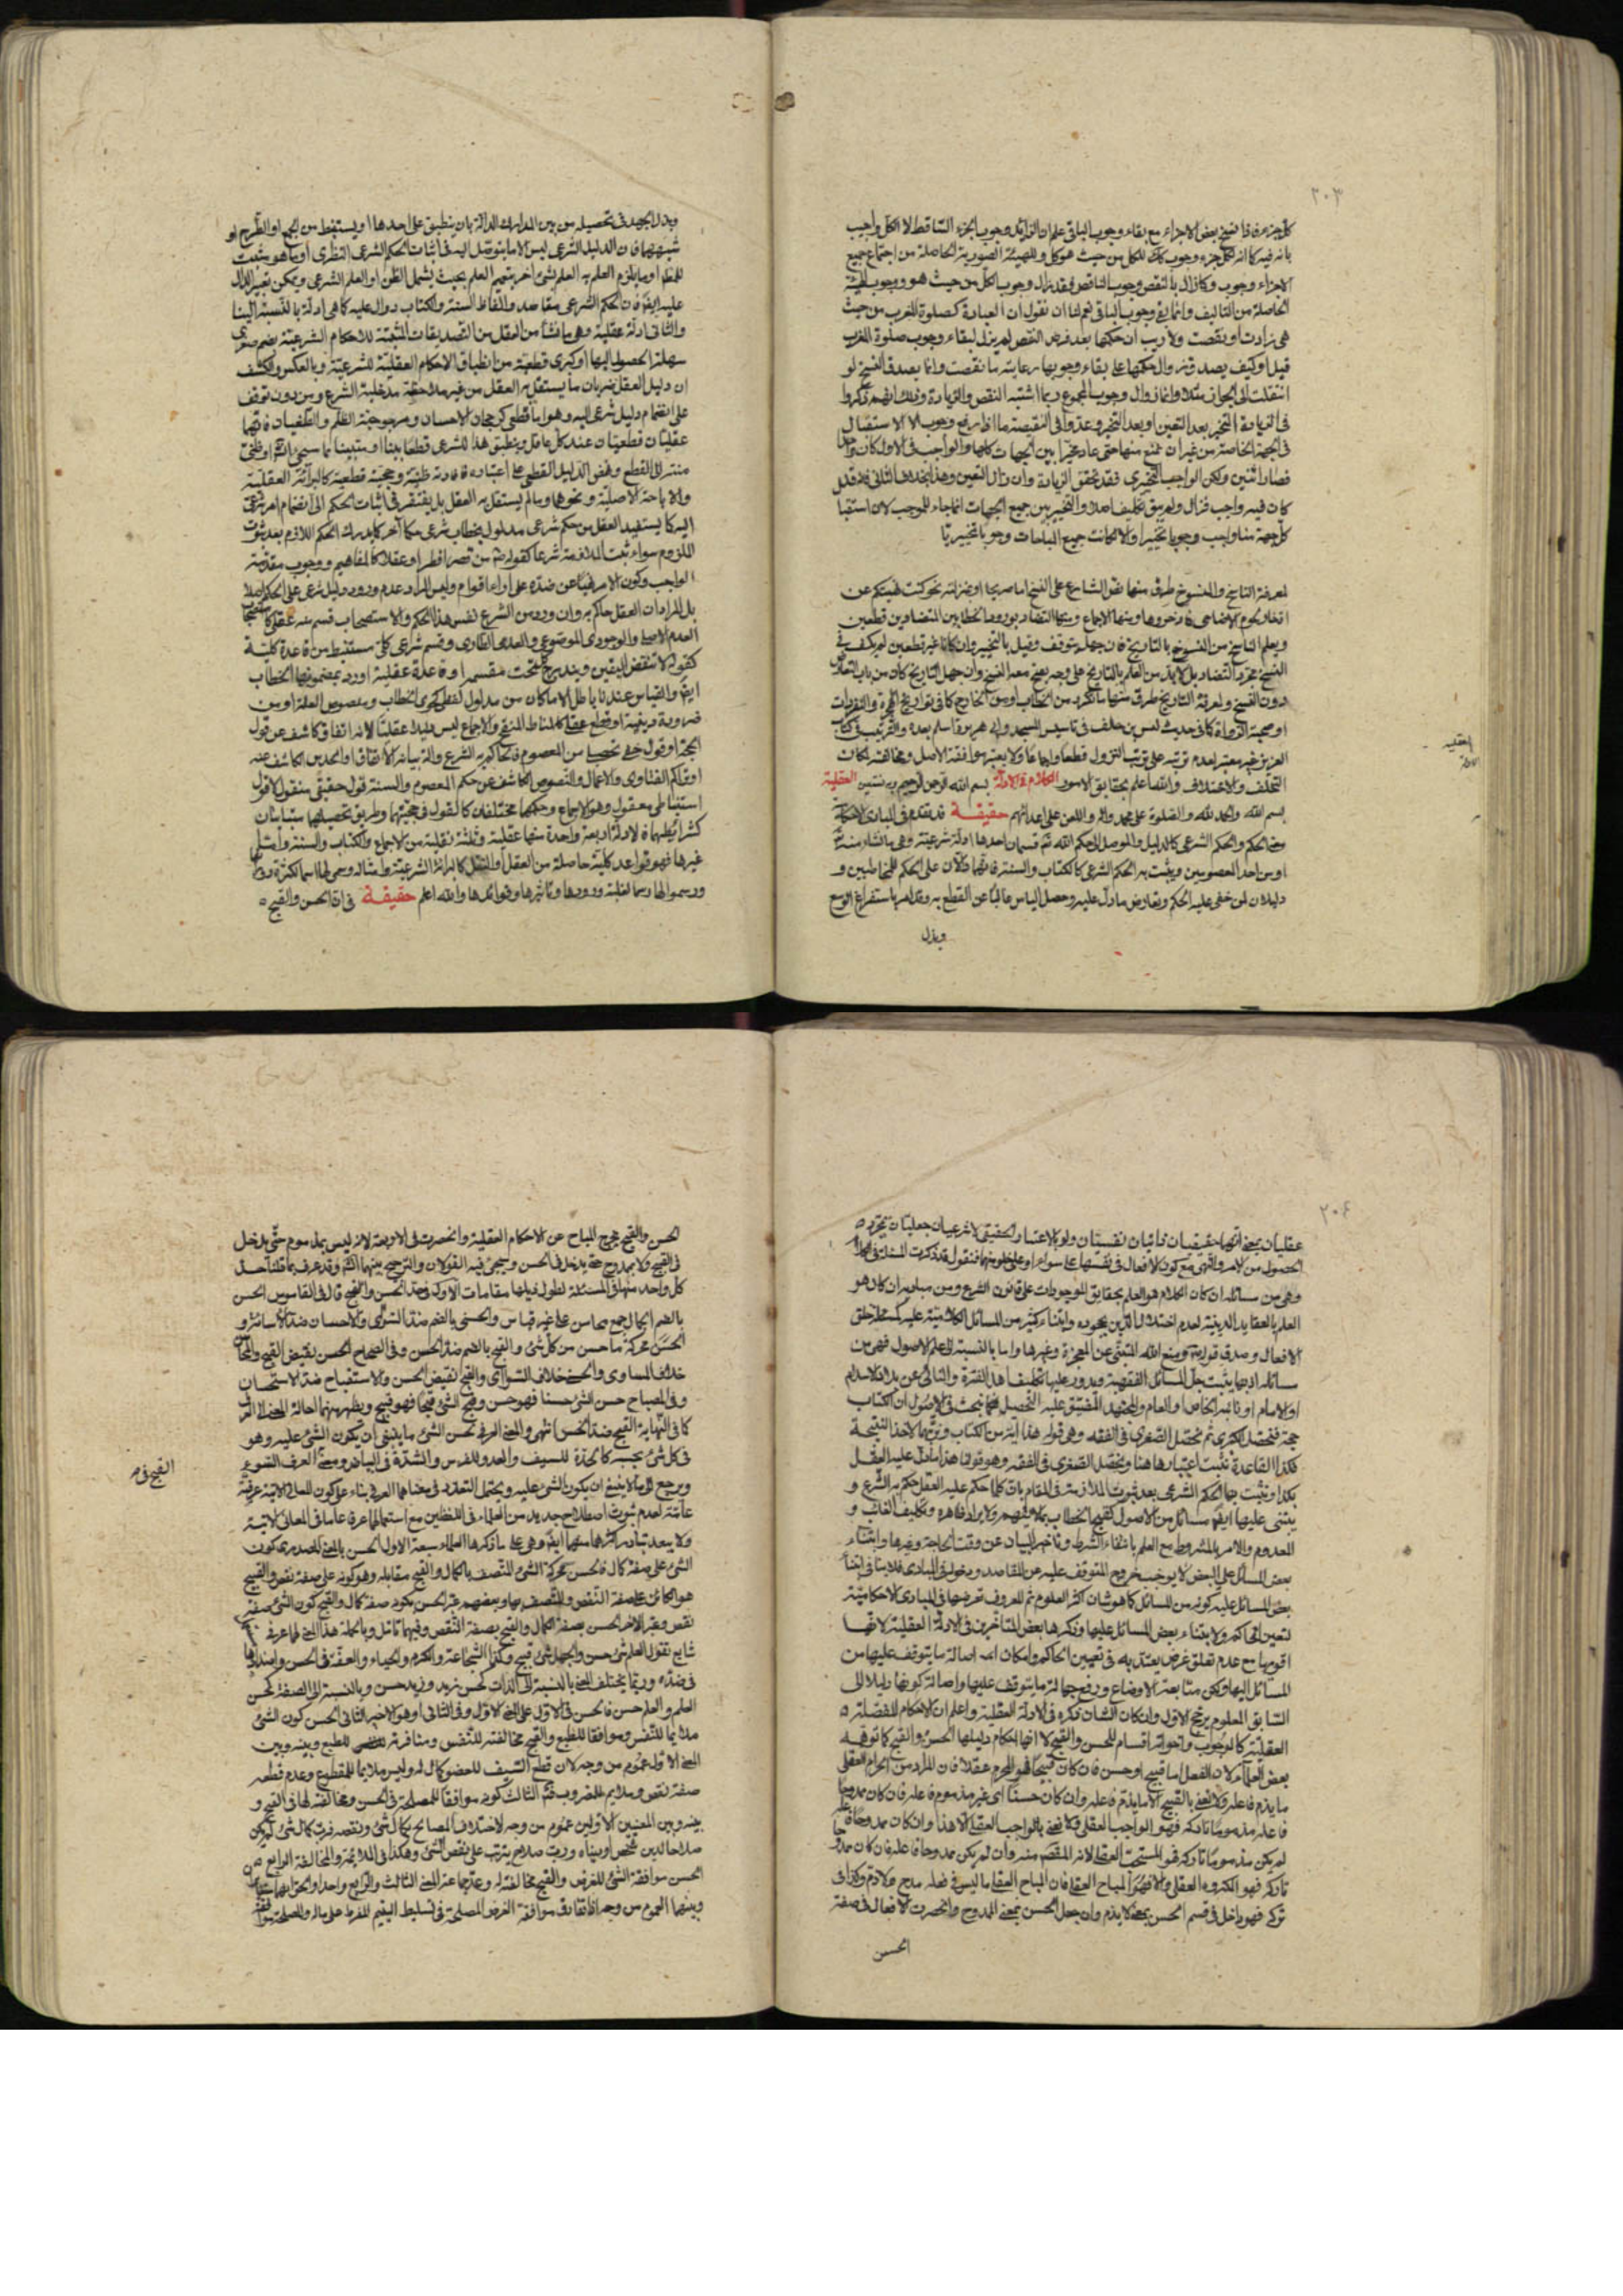 ٢٠٣
كل جزء فاذا نسخ بعض الاجزاء مع بقاء وجوب الباقي علم ان الزائل وجوب الجزء الساقط لا الكل واجيب
بانه فيه كما انه لكل جزء وجوب كك للكل من حيث هو كل وللهيئة الصورية الحاصلة من اجتماع جميع
الاجزاء وجوب وكما زال بالنقص وجوب الناقص فقد زال وجوب الكل من حيث هو ووجوب الهيئة
الحاصلة من التاليف وانما بقي وجوب الباقي نعم لنا ان نقول ان العبادة كصلوة المغرب من حيث
هي زادت او نقصت ولا ريب ان حكمها بعد فرض النقص لم يزل لبقاء وجوب صلوة المغرب
قيل او كيف يصدق زوال حكمها على بقاء وجوبها رعاية ما نقصت وانما يصدق النسخ لو
انتقلت الى الجواز مثلا وانما زوال وجوب المجموع ربما اشتبه النقص والزيادة وذلك انهم ذكروا
في الزيادة التخيير بعد التعيين او بعد التخيير وعدوا في النقيصة ما اذا رفع وجوب الاستقبال
في الجهة الخاصة من غير ان تمنع منها حتى عاد مخيرا بين الجهات كلها والواجب في الاول كان واحدا
فصار اثنين ولكن الواجب التخييري فقد تحقق الزيادة وان زال التعيين وهذا بخلاف الثاني فانه قد
كان فيه واجب فزال ولم يبق تكليف اصلا والتخيير بين جميع الجهات انما جاء للموجب لان استقبا
كل جهة منها واجب وجوبا تخييرا والا لكانت جميع المباحات وجوبا تخييريا
لمعرفة الناسخ والمنسوخ طرق منها نص الشارع على النسخ اما صريحا او بمنزلته نحو كنت نهيتكم عن
ادخار لحوم الاضاحي فادخروها ومنها الاجماع ومنها التضاد بورود الخطابين المتضادين قطعيين
ويعلم الناسخ من المنسوخ بالتاريخ فان جهل يتوقف وقيل بالتخيير وان كانا غير قطعيين لم يكف في
النسخ مجرد التضاد بل لا بد من العلم بالتاريخ على وجه يصح معه النسخ وان جهل التاريخ كان من باب التعادل
دون النسخ ولمعرفة التاريخ طرق منها ما تكرر من الخطاب او من الخارج كما في تواريخ الهجرة والغزوات
او صحبة الرواة كما في حديث ليس من خلف في تاسيس المسجد وابي هريرة اسلم بعده والترتيب في كتاب
العزيز غير معتبر لعدم ترتبه على ترتيب النزول قطعا واجماعا ولا يعتبر موافقة الاصل ومخالفته لمكان
التخلف والاختلاف والله اعلم بحقايق الامور الكلام في الادلة بسم الله الرحمن الرحيم وبه نستعين العقلية
بسم الله والحمد لله والصلوة على محمد واله واللعن على اعدائهم حقيقة قد يقدم في المبادي الاحكامية
معنى الحكم والحكم الشرعي كالدليل والموصل الى حكم الله ثم قسمان احدهما ادلة شرعية وهي ما نشاء منه تع
او من احد المعصومين ويثبت به الحكم الشرعي كالكتاب والسنة فانهما دالان على الحكم للمخاطبين و
دليلان لمن خفي عليه الحكم وتعارض ما دل عليه وحصل الياس غالبا عن القطع به وقد امر باستفراغ الوسع
وبذل
وبذل الجهد في تحصيله من بين المدارك الدالة بان ينطبق على احدها او يستنبط من الجمع او الطرح او
شبههما فان الدليل الشرعي ليس الا ما يتوصل اليه في اثبات الحكم الشرعي النظري او ما هو مثبت
للحكم او ما يلزم العلم به العلم بشيء اخر بتعميم العلم بحيث يشمل الظن او العلم الشرعي ويمكن تغيير الدال
عليه ايضا فان الحكم الشرعي مقاصد والفاظ السنة والكتاب دوال عليه كما هي ادلة بالنسبة الينا
والثاني ادلة عقلية وهي ما نشأ من العقل من التصديقات المثبتة للاحكام الشرعية بضم صغرى
سهلة الحصول اليها او كبرى قطعية من انطباق الاحكام العقلية للشرعية وبالعكس والكشف
ان دليل العقل ضربان ما يستقل به العقل من غير ملاحظة مدخلية الشرع ومن دون توقف
على انضمام دليل شرعي اليه وهو اما قطعي كرجحان الاحسان ومرجوحية الظلم والطغيان فانهما
عقليان قطعيان عند كل عاقل وينطبق هذا للشرعي قطعا بينا او متبينا بما سيجيء انش او ظني
منته الى القطع وهو الدليل القطعي على اعتباره فافادته ظنية وحجية قطعية كالبرائة العقلية
والاباحة الاصلية ونحوها وما لم يستقل به العقل بل يفتقر في اثبات الحكم الى انضمام امر شرعي
اليه كما يستفيد العقل من حكم شرعي مدلول بخطاب شرعي حكما آخر كما يدرك الحكم اللازم بعد ثبوت
الملزوم سواء ثبت الملازمة شرعا كقوله ص من قصر افطر او عقلا كالمفاهيم ووجوب مقدمة
الواجب وكون الامر نهيا عن ضده على اراء اقوام وليس المراد عدم ورود دليل شرعي على الحكم اصلا
بل المراد ان العقل حاكم به وان ورد من الشرع نفس هذا الحكم والاستصحاب قسم منه عقلي كاستصحاب
العدم الاصلي والوجودي الموضوعي والعدمي الطاري وقسم شرعي كلي مستنبط من قاعدة كلية
كقوله لا تنقض اليقين ويندرج تحت مقسمه او قاعدة عقلية اورد بمضمونها الخطاب
ايضا والقياس عندنا باطل الا ما كان من مدلول لفظي كفحوى الخطاب ومنصوص العلة او من
ضرورة دينية او قطع عقلي كالمناط المنقح والاجماع ليس دليلا عقليا لانه اتفاق كاشف عن قول
الحجة او قول خفي تحصيله من المعصوم فالحاكم به الشرع والمثبت له الاتفاق او الحدس الكاشف عنه
او تراكم الفتاوى والاعمال والنصوص الكاشف عن حكم المعصوم والسنة قول حقيقي منقول كالاول
استنباطي معقول وهو الاجماع وحكمهما مختلفان كالقول في حجيتهما وطريق تحصيلهما متباينان
كشرائطهما فالادلة اربعة واحدة منها عقلية وثلثة نقلية من الاجماع والكتاب والسنة واما
غيرها فهو قواعد كلية حاصلة من العقل او النقل كالبرائة الشرعية وامثاله وسمي لها اسما لكثرة
ورسموا لها رسما لغلبة ورودها وتاثيرها وفوائدها والله اعلم حقيقة في ان الحسن والقبح
٢٠٤
عقليان بمعنى انهما حقيقيان ذاتيان نفسيان ولو بالاعتبار الحقيقي لا شرعيان جعليان بمجرد
الحصول من الامر والنهي مع كون الافعال في نفسها على سواء او على خلو منهما فنقول قد ذكرت المسئلة في الكلام
وهي من مسائله ان كان الكلام هو العلم بحقايق الموجودات على قانون الشرع ومن مباديه ان كان هو
العلم بالعقايد الدينية لعدم اختلال الدين بجحوده وابتناء كثير من المسائل الكلامية عليه كمسئلة خلق
الافعال وصدق قوله تعالى ومنع الله المتنبي عن المعجزة وغيرها واما بالنسبة الى علم الاصول فهي من
مسائله اذ بها يثبت جل المسائل الفقهية ويدور عليها تكليف اهل الفترة والنائي عن بلاد الاسلام
او الامام او نائبه الخاص او العام والمجتهد المضيق عليه التحصيل فكما نبحث في الاصول ان الكتاب
حجة فتحصل الكبرى ثم تحتمل الصغرى في الفقه وهي قوله هذا اية من الكتاب ونرتبهما لاخذ النتيجة
فكذا القاعدة نثبت اعتبارها هنا ونحصل الصغرى في الفقه وهو قولنا هذا ما دل عليه العقل
بكذا ونثبت بهما الحكم الشرعي بعد ثبوت الملازمة في المقام بان كلما حكم عليه العقل حكم به الشرع و
يبتني عليها ايضا مسائل من الاصول كقبح الخطاب بما لا يفهم ولا يراد ظاهره وتكليف الغائب و
المعدوم والامر بالمشروط مع العلم بانتفاء الشرط وتاخير البيان عن وقت الحاجة وغيرها وابتناء
بعض المسائل على البعض لا يوجب خروج المتوقف عليه عن المقاصد ودخوله في المبادي فلا ينافي ابتناء
بعض المسائل عليه كونه من المسائل كما هو شان اكثر العلوم ثم المعروف تعرضها في المبادي الاحكامية
لتعيين الحاكم ولابتناء بعض المسائل عليها وذكرها بعض المتاخرين في الادلة العقلية لانها
اقومها مع عدم تعلق غرض يعتد به في تعيين الحاكم وامكان اصالة ما يتوقف عليها من
المسائل اليها ولكن متابعة الاوضاع ورفع جهالة ما يتوقف عليها واصالة كونها دليلا الى
السابق المعلوم يرجح الاول وان كان الشان ذكره في الادلة العقلية واعلم ان الاحكام المفصلة
العقلية كالوجوب واخواته اقسام للحسن والقبح لا انها احكام دليلها الحسن والقبح كما توهمه
بعض العلماء لان الفعل اما قبيح او حسن فان كان قبيحا فهو المحرم عقلا فان المراد من الحرام العقلي
ما يذم فاعله ولا نعني بالقبيح الا ما يذم فاعله وان كان حسنا اي غير مذموم فاعله فان كان ممدوحا
فاعله مذموما تاركه فهو الواجب العقلي ولا نعني بالواجب العقلي الا هذا وان كان ممدوحا فاعله
لم يكن مذموما تاركه فهو المستحب العقلي لانه المقصد منه وان لم يكن ممدوحا فاعله فان كان ممدوحا
تاركه فهو المكروه العقلي والا فهو المباح العقلي فان المباح العقلي ما ليس في فعله مدح ولا ذم وكذا في
تركه فهو داخل في قسم الحسن بمعنى لا يذم وان جعل الحسن بمعنى المدوح وانحصرت الافعال في صفة
الحسن
الحسن والقبح يخرج المباح عن الاحكام العقلية وانحصرت في الاربعة لانه ليس بمذموم حتى يدخل
في القبح ولا بممدوح حتى يدخل في الحسن وسيجيء فيه القولان والترجيح بينهما انش وقد عرف بما قلنا حد
كل واحد منها في المسئلة لطول ذيلها مقامات الاول في حد الحسن والقبح قال في القاموس الحسن
بالضم الجمال جمع محاسن على غير قياس والحسنى بالضم ضد السوأى والاحسان ضد الاساءة و
الحسن محركة ما حسن من كل شيء والقبح بالضم ضد الحسن وفي الصحاح الحسن نقيض القبح والمحاسن
خلاف المساوي والحسنى خلاف السوأى والقبح نقيض الحسن والاستقباح ضد الاستحسان
وفي المصباح حسن الشيء حسنا فهو حسن وقبح الشيء قبحا فهو قبيح ويظهر منهما احالة المعنى الى العرف
كما في النهاية القبح ضد الحسن انتهى والمعنى العرفي لحسن الشيء ما ينبغي ان يكون الشيء عليه وهو
في كل شيء بحسبه كالحدة للسيف والعدو للفرس والشدة في البياض ومعنى العرف القبح
ويرجع الى ما لا ينبغي ان يكون الشيء عليه ويحتمل التعدد في معناهما العرفي بناء على كون المعاني الاتية عرفية
عامة لعدم ثبوت اصطلاح جديد من العلماء في اللفظين مع استعمالهما عرفا عاما في المعاني الاتية
ولا يبعد تبادر اكثرها منهما ايضا وهي على ما ذكرها العلماء سبعة الاول الحسن بالمعنى المصدري كون
الشيء على صفة كمال فالحسن محركة الشيء المتصف بالكمال والقبح مقابله وهو كونه على صفة نقص والقبيح
هو الكائن على صفة النقص والمتصف بها وبعضهم عبر الحسن بكونه صفة كمال والقبح كون الشيء صفة
نقص وعبر الاخر الحسن بصفة الكمال والقبح بصفة النقص وفيهما تامل وبالجملة هذا المعنى لهما عرفي
شايع نقول العلم شيء حسن والجهل شيء قبيح وكذا الشجاعة والكرم والحياء والعفة في الحسن واضدادها
في ضده وربما يختلف المعنى بالنسبة الى الذات كحسن زيد وزيد حسن وبالنسبة الى الصفة كحسن
العلم والعلم حسن فالحسن في الاول على المعنى الاول وفي الثاني او هو الاخير الثاني الحسن كون الشيء
ملايما للنفس وموافقا للطبع والقبح مخالفته للنفس ومنافرته للطبع وبينه وبين
المعنى الاول عموم من وجه لان قطع السيف للعضو كمال له وليس ملايما للمقطوع وعدم قطعه
صفة نقص وملايم للمضروب ثم الثالث كونه موافقا للمصلحة في الحسن ومخالفته لها في القبح و
بينه وبين المعنيين الاولين عموم من وجه لاختلاف المصالح بكمال شيء ونقصه فرب كمال شيء لم يكن
صلاحا لدين شخص او دنياه ورب صلاح يترتب على نقص الشيء وهكذا في الملايمة والمخالفة الرابع
الحسن موافقة الشيء للغرض والقبح مخالفته له وعد جماعة المعنى الثالث والرابع واحدا والحق انهما متغايران
وبينهما العموم من وجه اذ تفارق موافقة الغرض المصلحة في تسليط اليتيم المفرط على ماله والمصلحة موافقة
العقلية
الادلة
القبح في م